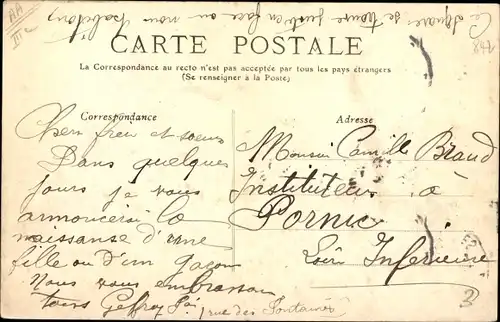 Ce square se trouve juste en face ou nous habitons
CARTE POSTALE
La Correspondance au recto n'est pas acceptée par tous les pays étrangers
(Se renseigner à la Poste)
Correspondance
Cher frere et soeur
Dans quelques
jours je vous
annoncerai la
naissanse d'une
fille ou d'un gaçon
Nous vous embrassons
tous Geffroy
rue des Fontaines
Adresse
Monsieur Camille Braud
Instituteur à
Pornic
Loire Inferieure